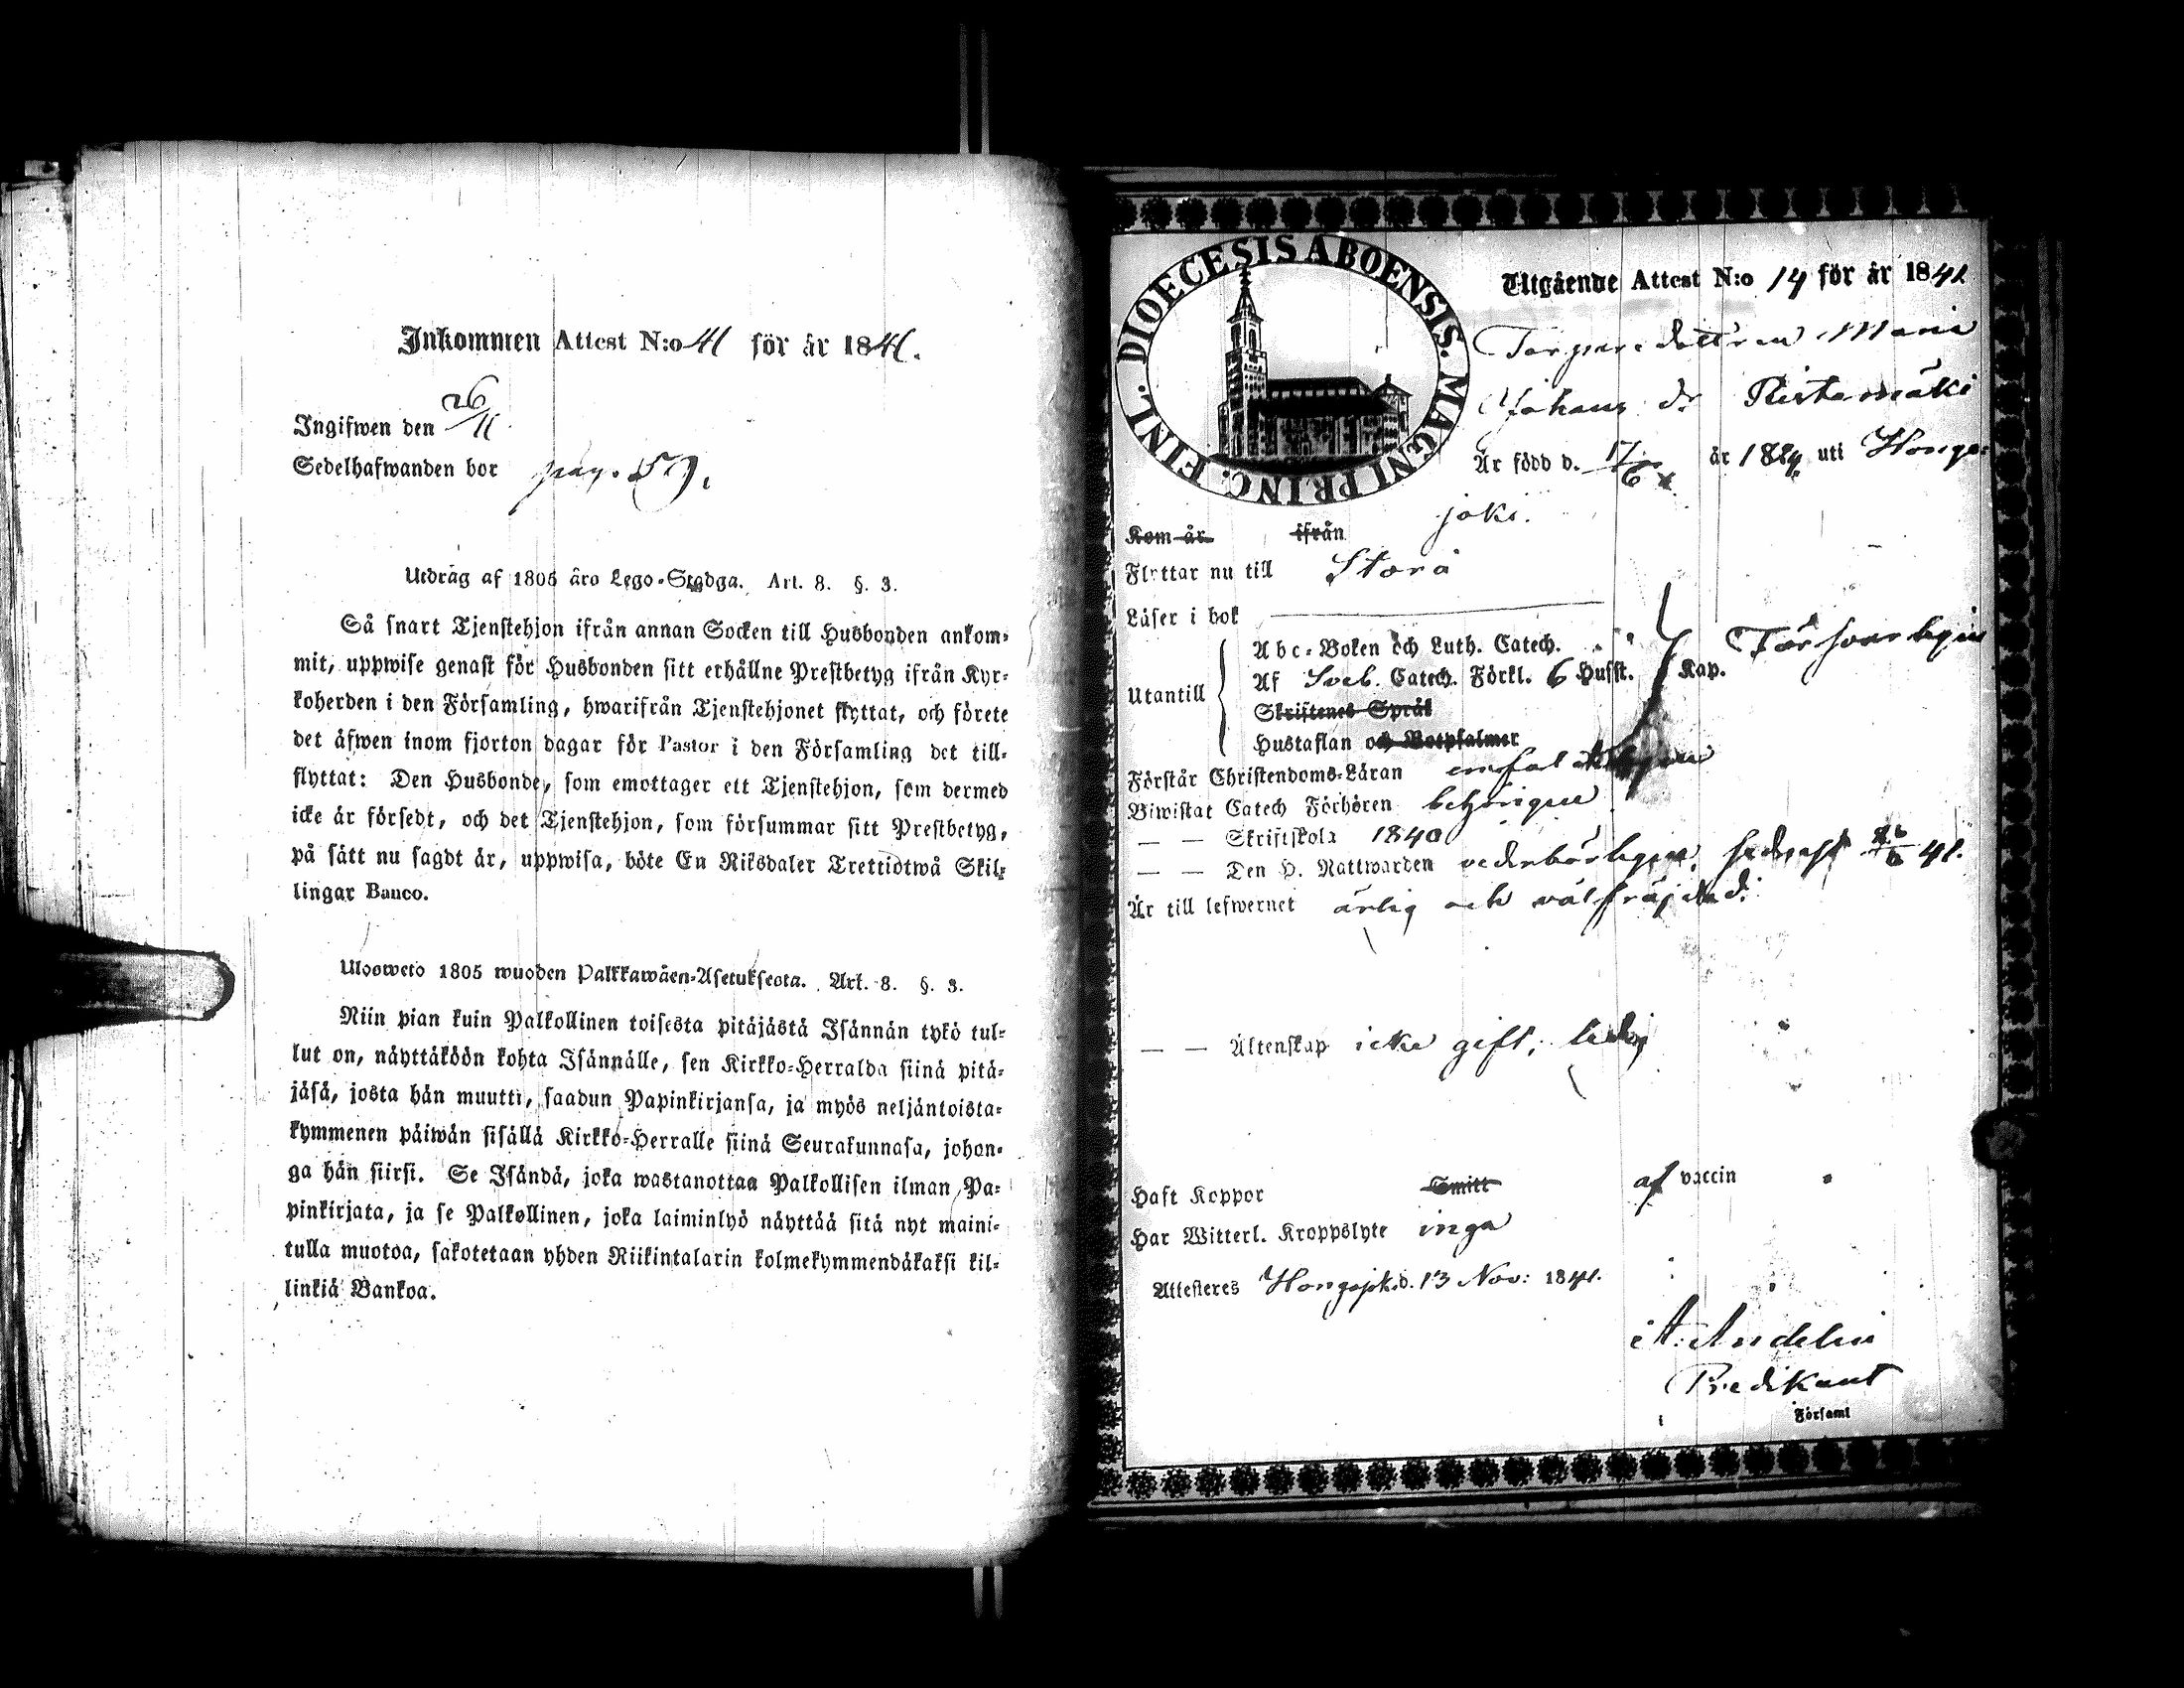 Inkommen Attest N:o 41 för år 1841.
Ingifwen den 26/11
Sedelhafwanden bor pag. 59.
Utdrag af 1805 års Lego-Stadga. Art. 8. §. 3.
Så snart Tjenstehjon ifrån annan Socken till Husbonden ankom-
mit, uppwise genast för Husbonden sitt erhållne Prestbetyg ifrån Kyr-
koherden i den Församling, hwarifrån Tjenstehjonet flyttat, och förete
det äfwen inom fjorton dagar för Pastor i den Församling det till-
flyttat: Den Husbonde, som emottager ett Tjenstehjon, som dermed
icke är försedt, och det Tjenstehjon, som försummar sitt Prestbetyg,
på sätt nu sagdt är, uppwisa, böte En Riksdaler Trettiotwå Skil-
lingar Banco.
Ulosweto 1805 wuoden Palkkawäen-Asetuksesta. Art. 8. §. 3.
Niin pian kuin Palkollinen toisesta pitäjästä Isännän tykö tul-
lut on, näyttäköön kohta Isännälle, sen Kirkko-Herralda siinä pitä-
jäsä, josta hän muutti, saadun Papinkirjansa, ja myös neljäntoista-
kymmenen päiwän sisällä Kirkko-Herralle siinä Seurakunnasa, johon-
ga hän siirsi. Se Isändä, joka wastanottaa Palkollisen ilman Pa-
pinkirjata, ja se Palkollinen, joka laiminlyö näyttää sitä nyt maini-
tulla muotoa, sakotetaan yhden Riikintalarin kolmekymmendäkaksi kil-
linkiä Bankoa.
DIOECESIS ABOENSIS. MAGNI PRINC. FINL.
Utgående Attest N:o 14 för år 1841
Torpare dottren Maria
Johans dr Ristamäki
Är född d. 17/6 år 1824 uti Honga-
joki.
Kom år ifrån
Flyttar nu till Storå
Läser i bok
Abc-Boken och Luth. Catech.
Utantill Af Sveb. Catech. Förkl. 6 Husst. Kap. Försvarligen
Skriftenes Språk
Hustaflan och Botpsalmer
Förstår Christendoms-Läran
Biwistat Catech Förhören behörigen
— — Skriftskola 1840
— — Den H. Nattwarden vederbörligen, sednast 41.
Är till lefwernet ärlig och välfräjdad.
— — Äktenskap icke gift, ledig
Haft Koppor Smitt af vaccin
Har Witterl. Kroppslyte inga
Attesteres Hongojoki d. 13 Nov: 1841.
A. Andelin
Predikant
Församl